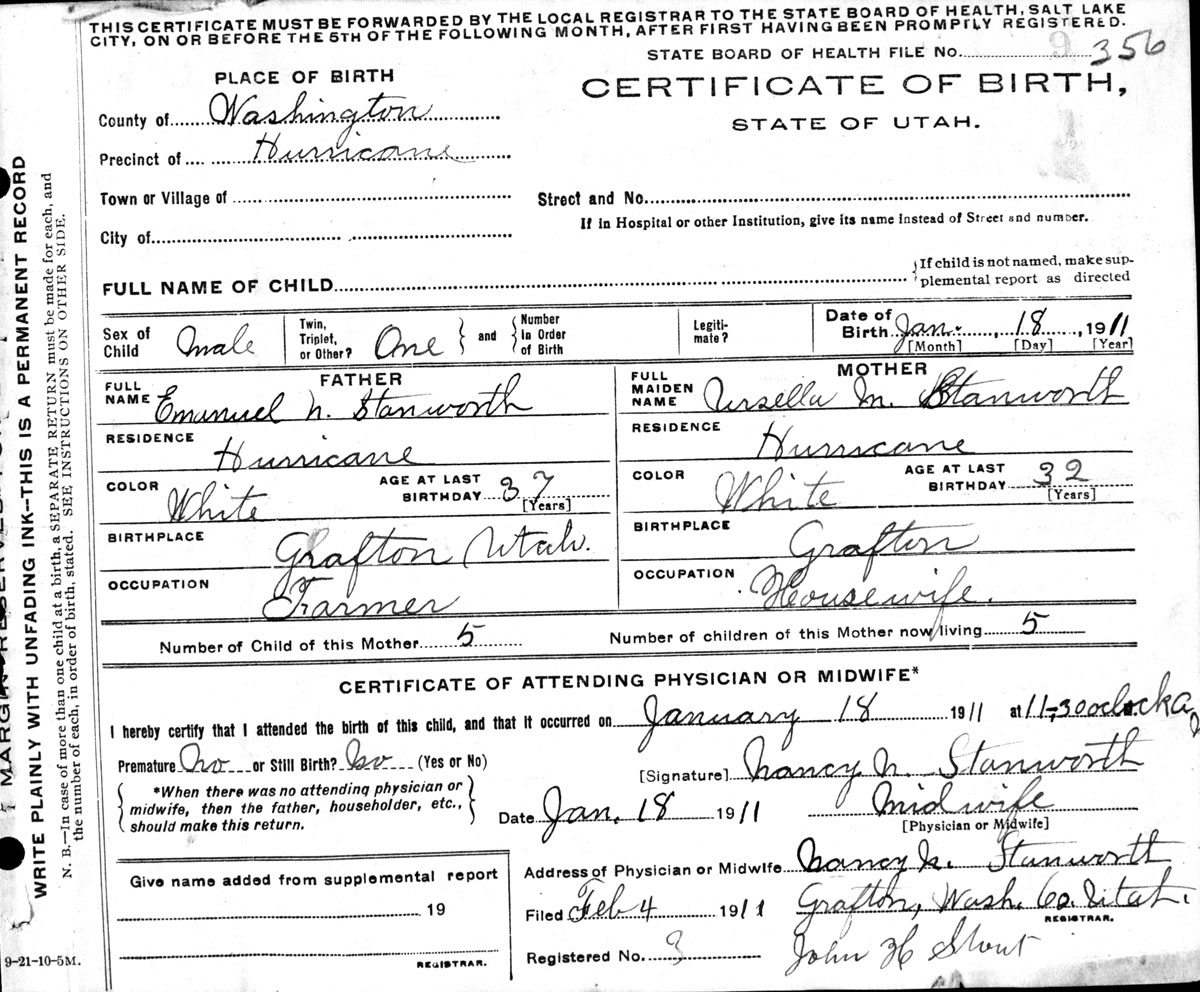 THIS CERTIFICATE MUST BE FORWARDED BY THE LOCAL REGISTRAR TO THE STATE BOARD OF HEALTH, SALT LAKE
CITY, ON OR BEFORE THE 5TH OF THE FOLLOWING MONTH, AFTER FIRST HAVING BEEN PROMPTLY REGISTERED.
STATE BOARD OF HEALTH FILE NO. 9 356
PLACE OF BIRTH
CERTIFICATE OF BIRTH,
STATE OF UTAH.
County of Washington
Precinct of Hurricane
Town or Village of
Street and No.
If in Hospital or other Institution, give its name instead of Street and number.
City of
FULL NAME OF CHILD
{If child is not named, make sup-
plemental report as directed
Sex of Child Male
Twin, Triplet, or Other? One } and { Number In Order of Birth
Legiti-mate?
Date of Birth Jan. , 18 , 1911
[Month] [Day] [Year]
FATHER
MOTHER
FULL NAME Emanuel N. Stanworth
FULL MAIDEN NAME Ursella M. Stanworth
RESIDENCE Hurricane
RESIDENCE Hurricane
COLOR White
AGE AT LAST BIRTHDAY 37 [Years]
COLOR White
AGE AT LAST BIRTHDAY 32 [Years]
BIRTHPLACE Grafton Utah.
BIRTHPLACE Grafton
OCCUPATION Farmer
OCCUPATION Housewife.
Number of Child of this Mother 5
Number of children of this Mother now living 5
CERTIFICATE OF ATTENDING PHYSICIAN OR MIDWIFE*
I hereby certify that I attended the birth of this child, and that it occurred on January 18 1911 at 11,30 oclock a,
Premature No or Still Birth? (Yes or No)
*When there was no attending physician or
midwife, then the father, householder, etc.,
should make this return.
[Signature] Nancy N. Stanworth
Date Jan. 18 1911
Midwife
[Physician or Midwife]
Give name added from supplemental report
19
REGISTRAR.
Address of Physician or Midwife Nancy N. Stanworth
Filed Feb 4 1911 Grafton, Wash. Co. Utah.
REGISTRAR.
Registered No. 3 John H Stout
9-21-10-5M.
WRITE PLAINLY WITH UNFADING INK—THIS IS A PERMANENT RECORD
N. B.—In case of more than one child at a birth, a SEPARATE RETURN must be made for each, and
the number of each, in order of birth, stated. SEE INSTRUCTIONS ON OTHER SIDE.